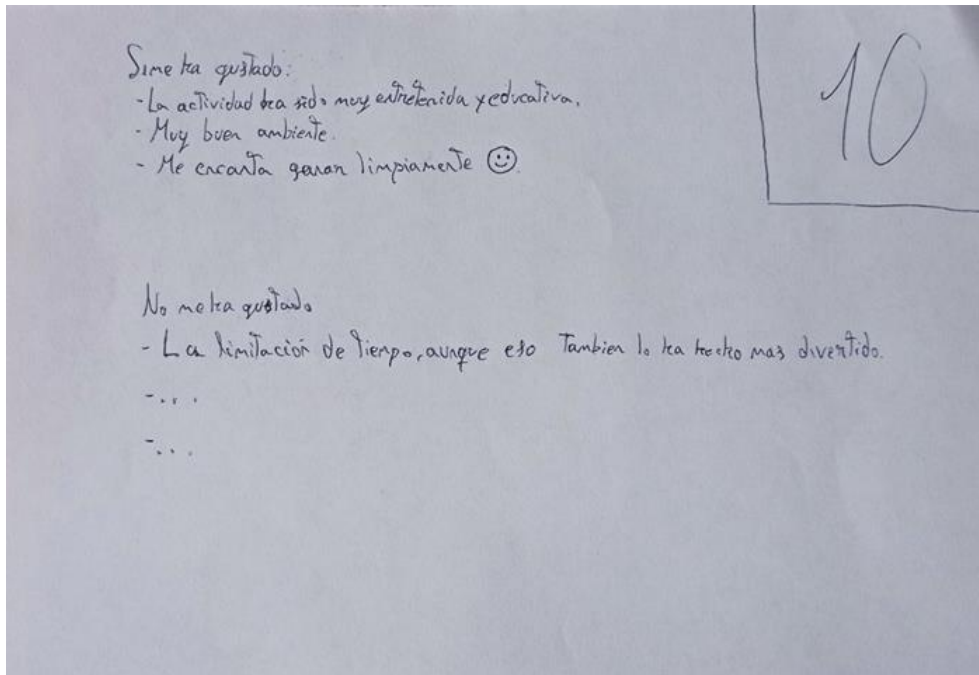 Sime ha gustado:
- La actividad ha sido muy entretenida y educativa.
- Muy buen ambiente.
- Me encanta ganar limpiamente ☺.
10
No me ha gustado
- La limitación de tiempo, aunque eso Tambien lo ha hecho mas divertido.
-...
-...